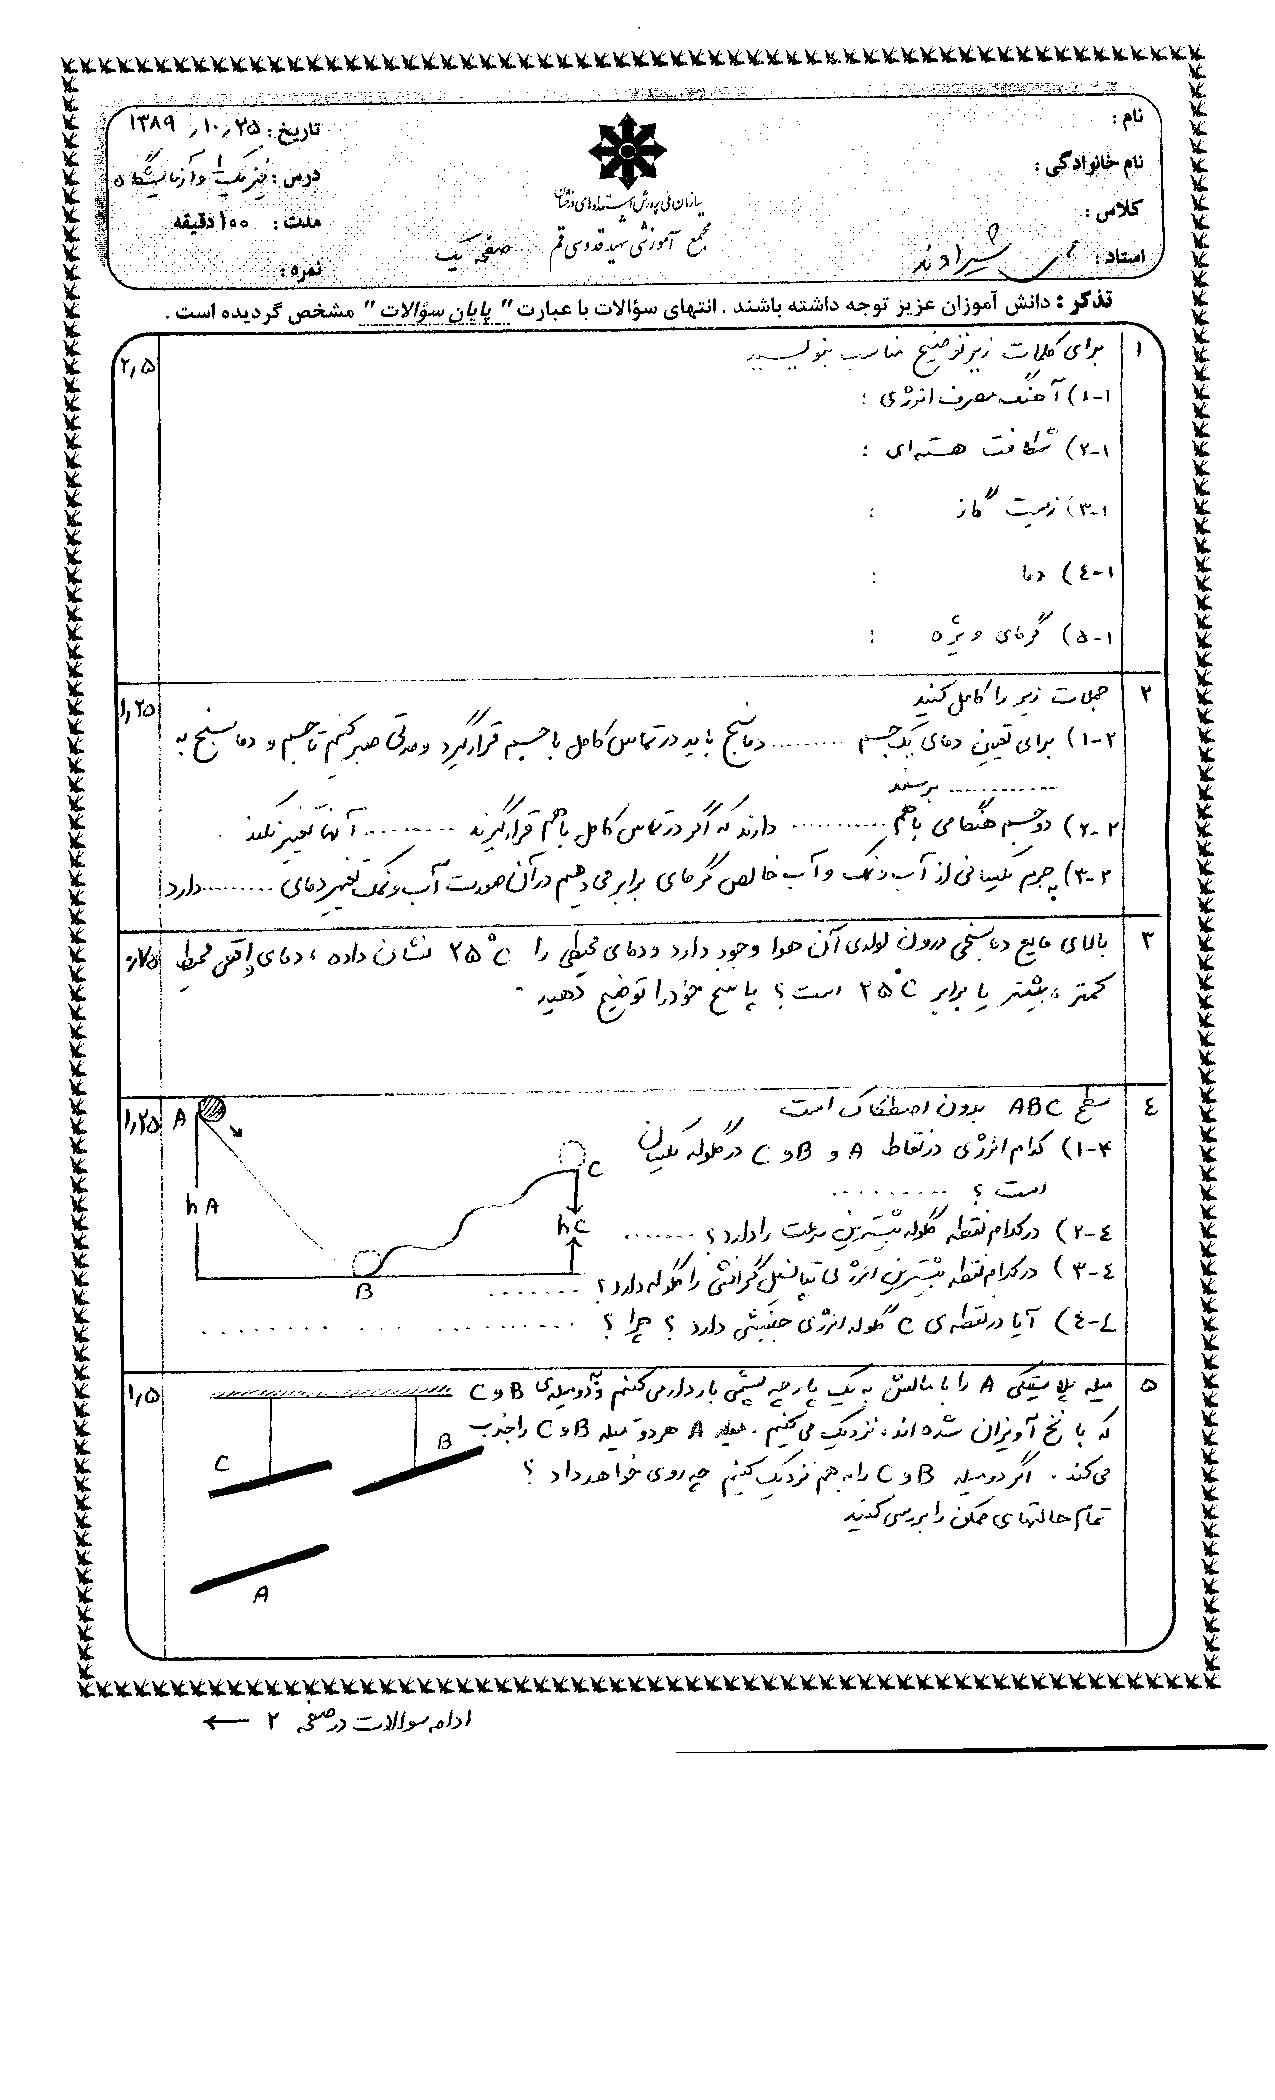 نام :
نام خانوادگی :
کلاس :
استاد : شیراوند
سازمان ملی پرورش استعدادهای درخشان
مجتمع آموزشی شهید قدوسی قم
صفحه یک
تاریخ : ۱۳۸۹٫۱۰٫۲۵
درس : فیزیک ۱ و آزمایشگاه
مدت : ۱۰۰ دقیقه
نمره :
تذکر : دانش آموزان عزیز توجه داشته باشند . انتهای سؤالات با عبارت " پایان سؤالات " مشخص گردیده است .
۱ برای کلمات زیر توضیح مناسب بنویسید ۲٫۵
۱-۱) آهنگ مصرف انرژی :
۱-۲) شکافت هسته‌ای :
۱-۳) زیست گاز :
۱-٤) دما :
۱-۵) گرمای ویژه :
۲ جملات زیر را کامل کنید ۱٫۲۵
۲-۱) برای تعیین دمای یک جسم ......... دماسنج باید در تماس کامل با جسم قرار گیرد و مدتی صبر کنیم تا جسم و دماسنج به
............ برسند
۲-۲) دو جسم هنگامی باهم ........... دارند که اگر در تماس کامل با هم قرار گیرند ........... آنها تغییر نکند .
۲-۳) به جرم یکسانی از آب و نمک و آب خالص گرمای برابر می دهیم در آن صورت آب و نمک تغییر دمای ......... دارد
۳ بالای مایع دماسنجی درون لوله‌ی آن هوا وجود دارد و دمای محیطی را ۲۵°C نشان داده ، دمای واقعی محیط ۰٫۷۵
کمتر ، بیشتر یا برابر ۲۵°C است ؟ پاسخ خود را توضیح دهید .
٤ سطح ABC بدون اصطکاک است ۱٫۲۵
۴-۱) کدام انرژی در نقاط A و B و C در گلوله یکسان
است ؟ ..........
٤-۲) در کدام نقطه گلوله بیشترین سرعت را دارد ؟ ........
٤-۳) در کدام نقطه بیشترین انرژی پتانسیل گرانشی را گلوله دارد ؟ .........
٤-٤) آیا در نقطه‌ی C گلوله انرژی جنبشی دارد ؟ چرا ؟ ..........
A
hA
B
C
hC
۵ میله پلاستیکی A را با مالش به یک پارچه پشمی باردار می کنیم و به دو میله‌ی B و C ۱٫۵
که با نخ آویزان شده اند ، نزدیک می کنیم . میله A هر دو میله B و C را جذب
می کند . اگر دو میله B و C را به هم نزدیک کنیم چه روی خواهد داد ؟
تمام حالتهای ممکن را بررسی کنید
C
B
A
ادامه سوالات در صفحه ۲ ←